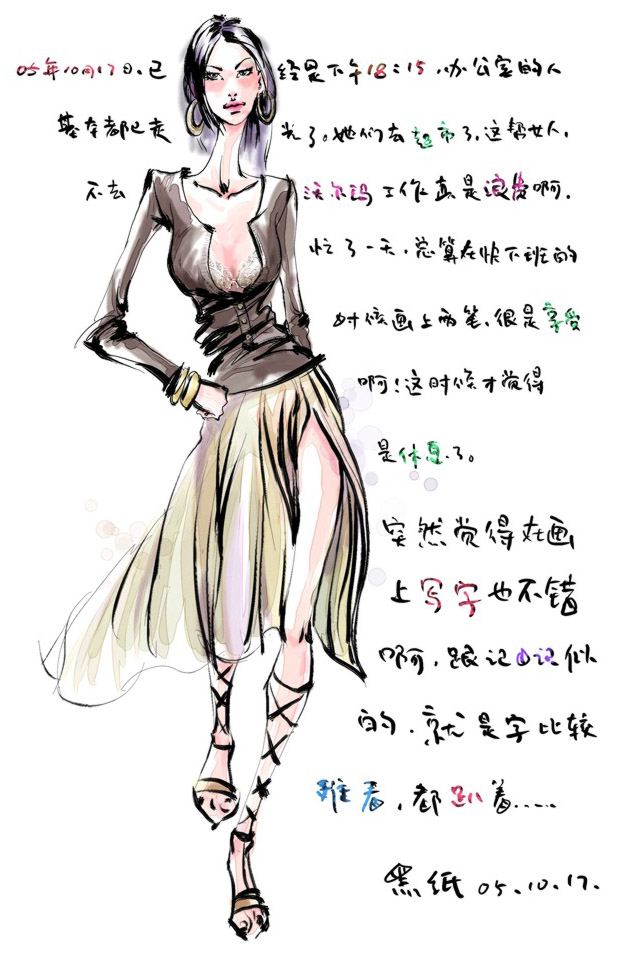 05年10月17日、已经是下午18:15,办公室的人
基本都已走光了。她们去超市了,这帮女人,
不去沃尔玛工作真是浪费啊,
忙了一天,总算在快下班的
时候画上两笔,很是享受
啊!这时候才觉得
是休息了。
突然觉得在画
上写字也不错
啊,跟记日记似
的,就是字比较
难看,都趴着……
黑纸 05.10.17.